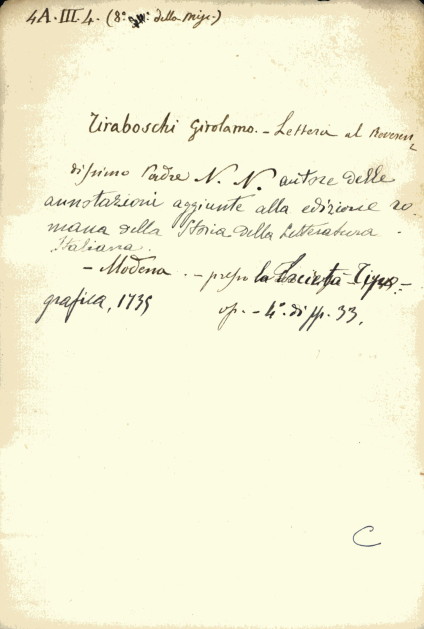 4A. III. 4. (8° della Misc.)
Tiraboschi Girolamo. - Lettera al Reveren-
dissimo Padre N. N. autore delle
annotazioni aggiunte alla edizione ro-
mana della Storia della Letteratura
Italiana.
- Modena. - presso la Società Tipo-
grafica, 1785
op. - 4° di pp. 33.
C